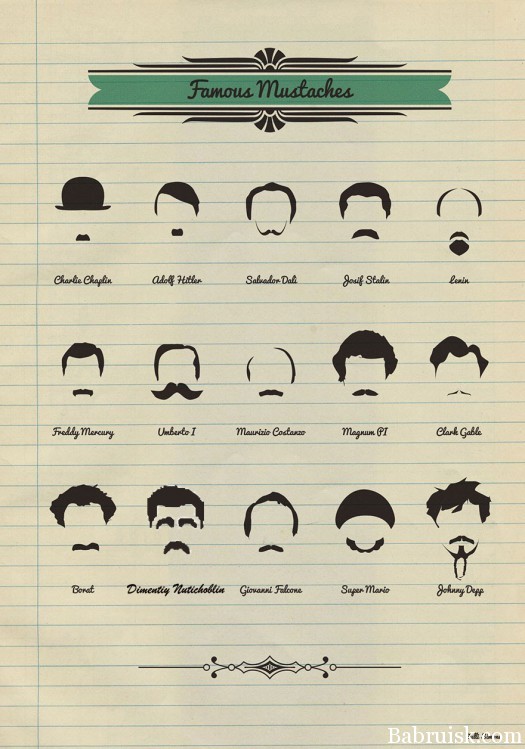 Famous Mustaches
Charlie Chaplin
Adolf Hitler
Salvador Dalì
Josif Stalin
Lenin
Freddy Mercury
Umberto I
Maurizio Costanzo
Magnum PI
Clark Gable
Borat
Dimentiy Nutichoblin
Giovanni Falcone
Super Mario
Johnny Depp
Babruisk.com